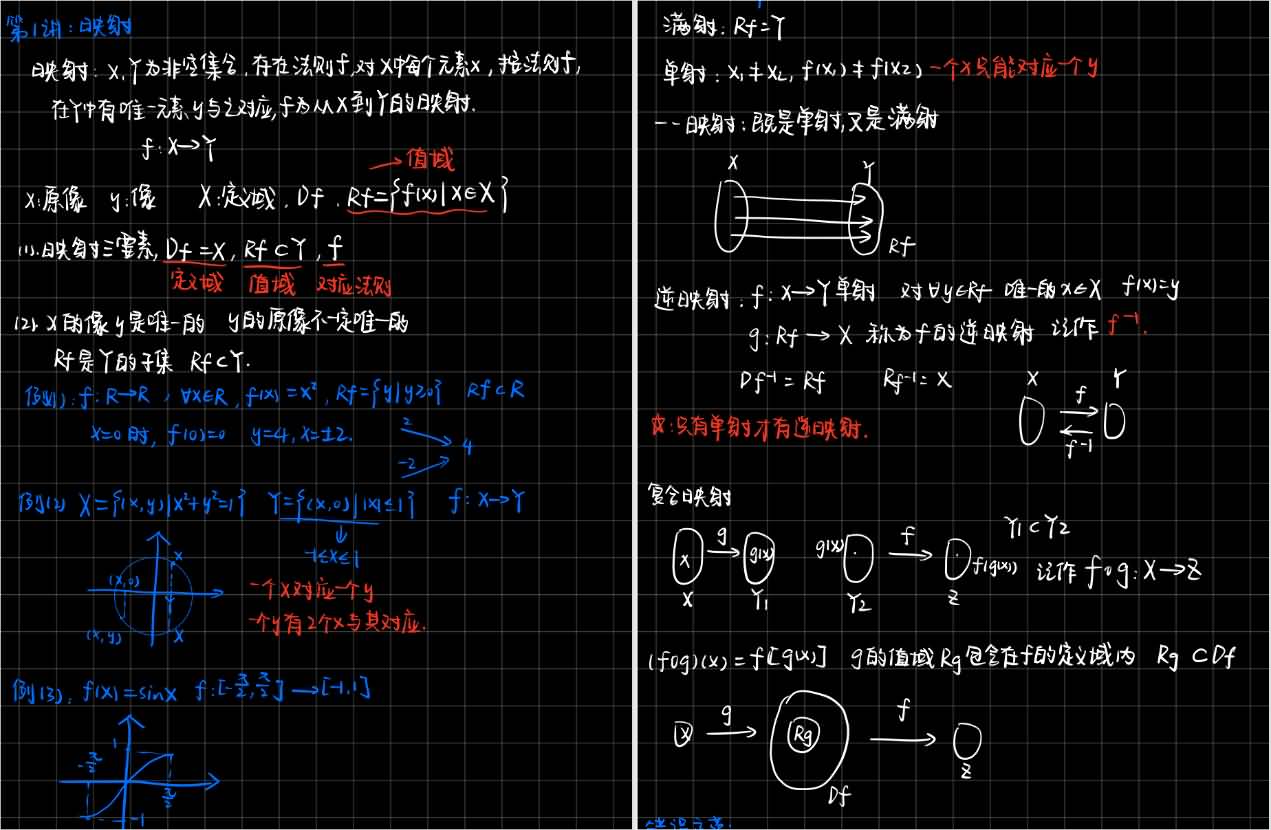 第1讲:映射
映射: X,Y为非空集合,存在法则f,对X中每个元素x,按法则f,
在Y中有唯一元素y与之对应,f为从X到Y的映射.
f:X→Y
→值域
x:原像 y:像 X:定义域. Df. Rf={f(x)|x∈X}
(1).映射三要素, Df=X, Rf⊂Y, f
定义域 值域 对应法则
(2). X的像y是唯一的 y的原像不一定唯一的
Rf是Y的子集 Rf⊂Y.
例(1): f:R→R, ∀x∈R, f(x)=x², Rf={y|y≥0} Rf⊂R
x=0时, f(0)=0 y=4, x=±2.
2
4
-2
例(2) X={(x,y)|x²+y²=1} Y={(x,0)||x|≤1} f:X→Y
-1≤x≤1
x
(x,0)
(x,y)
x
一个x对应一个y
一个y有2个x与其对应.
例(3): f(x)=sinx f:[-π/2,π/2]→[-1,1]
1
-π/2
π/2
-1
满射: Rf=Y
单射: x₁≠x₂, f(x₁)≠f(x₂) 一个x只能对应一个y
一一映射:既是单射,又是满射
X Y
Rf
逆映射: f:X→Y单射 对∀y∈Rf 唯一的x∈X f(x)=y
g:Rf→X 称为f的逆映射 记作 f⁻¹.
Df⁻¹=Rf Rf⁻¹=X
X Y
f
f⁻¹
☆:只有单射才有逆映射.
复合映射
Y₁⊂Y₂
x g g(x) g(x) f f(g(x)) 记作 f∘g:X→Z
X Y₁ Y₂ Z
(f∘g)(x)=f[g(x)] g的值域Rg包含在f的定义域内 Rg⊂Df
X g Rg f
Z
Df